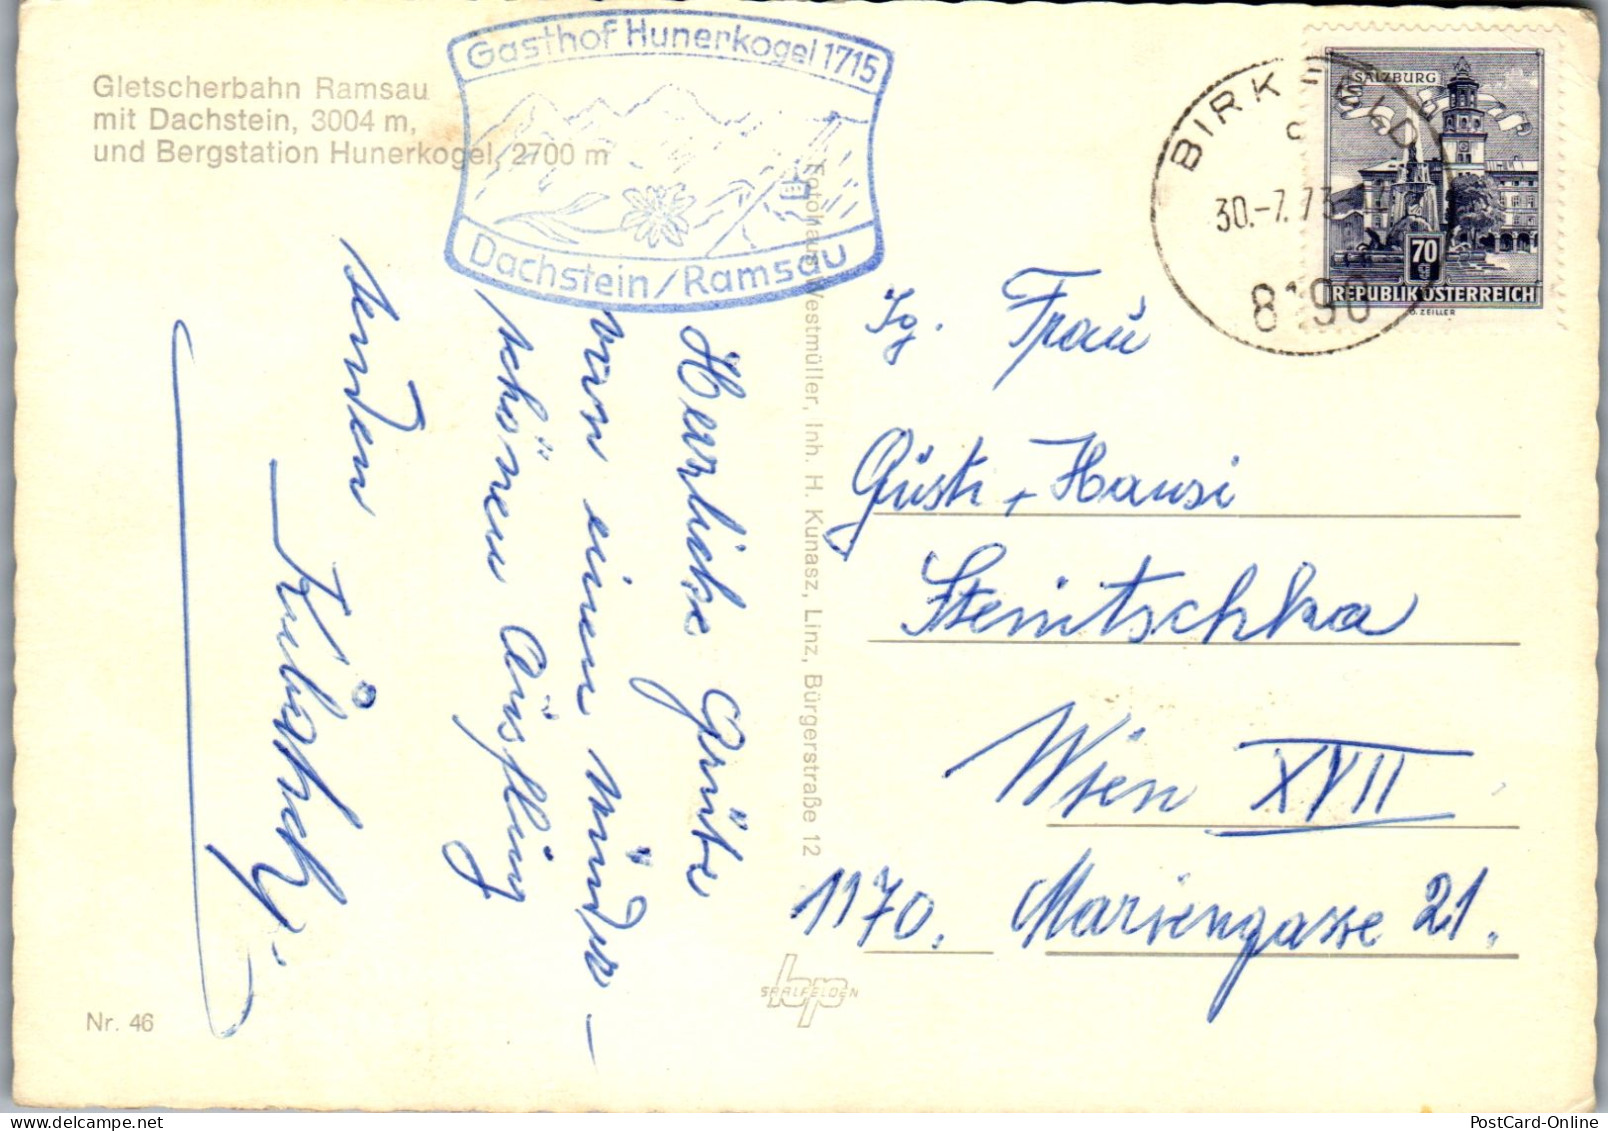 Gletscherbahn Ramsau
mit Dachstein, 3004 m,
und Bergstation Hunerkogel, 2700 m
Gasthof Hunerkogel 1715
Dachstein/Ramsau
BIRKFELD
30.-7.73
8190
SALZBURG
70
g
REPUBLIK ÖSTERREICH
O. ZEILLER
Herzliche Grüße
von einem wunder-
schönen Ausflug
senden
Fotohaus Westmüller, Inh. H. Kunasz, Linz, Bürgerstraße 12
Frau
Gusti + Hansi
Stenitschka
Wien XVII
1170. Mariengasse 21.
SAALFELDEN
Nr. 46
PostCard-Online